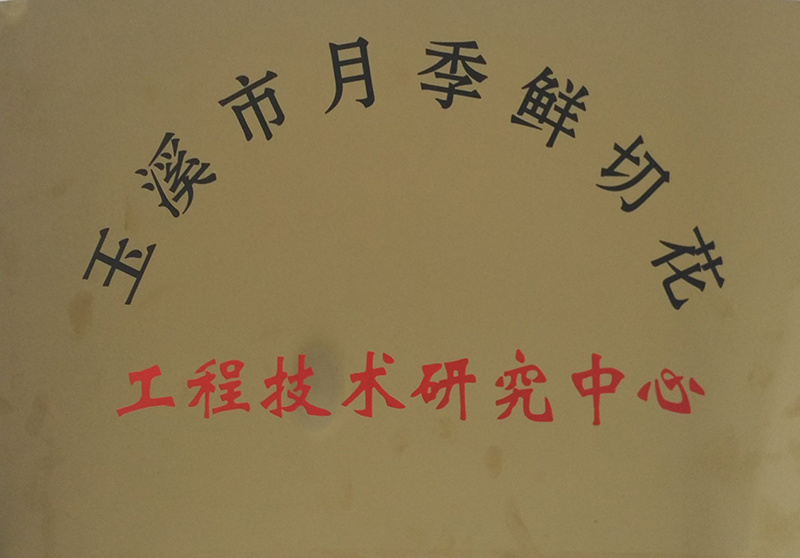 玉溪市月季鲜切花
工程技术研究中心